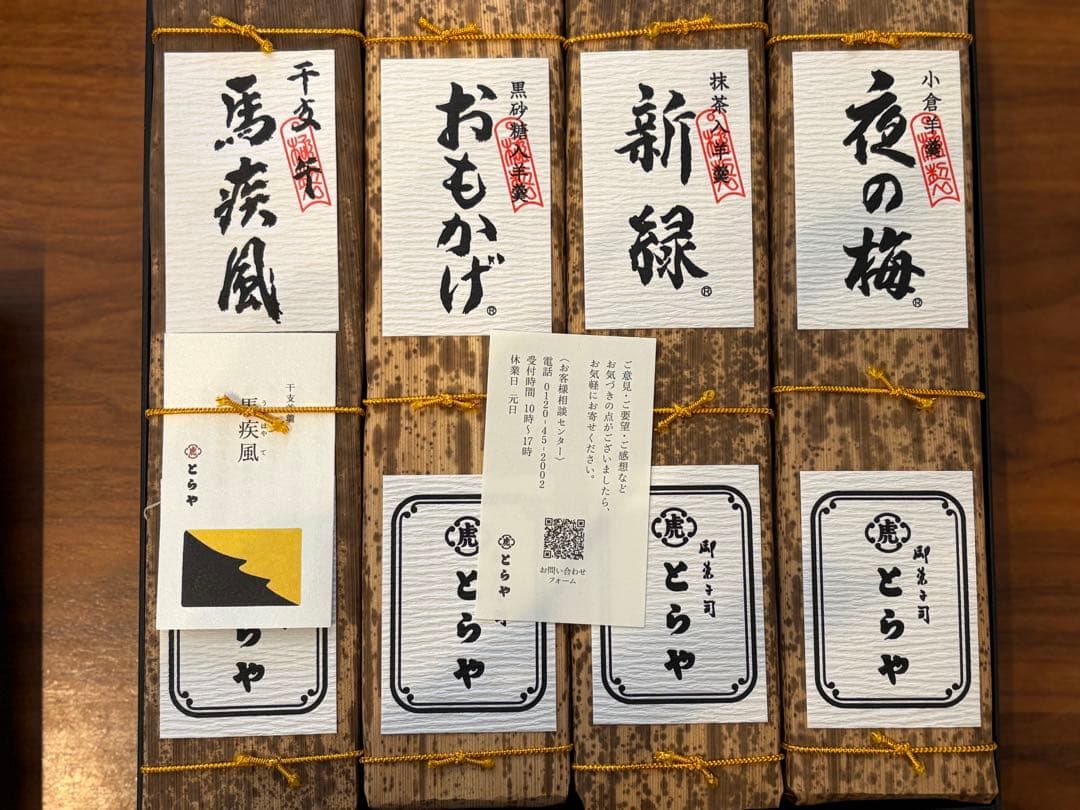 小倉羊羹
夜の梅®
抹茶入羊羹
新緑®
黒砂糖入羊羹
おもかげ®
干支 午
馬疾風
ご意見・ご要望・ご感想など
お気づきの点がございましたら、
お気軽にお寄せください。
（お客様相談センター）
電話 0120-45-2002
受付時間 10時〜17時
休業日 元日
お問い合わせ
フォーム
虎
とらや
干支羊羹
馬疾風
虎
とらや
虎
御菓子司
とらや
虎
御菓子司
とらや
虎
とらや
らや